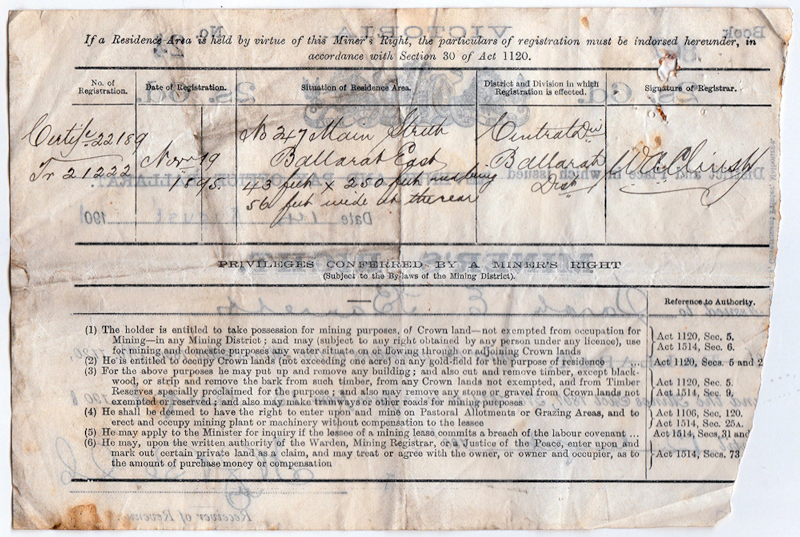 If a Residence Area is held by virtue of this Miner's Right, the particulars of registration must be indorsed hereunder, in
accordance with Section 30 of Act 1120.
No. of
Registration.
Date of Registration.
Situation of Residence Area.
District and Division in which
Registration is effected.
Signature of Registrar.
Certife 22189
Tr 21222
Novr 19
1895.
No 247 Main Street
Ballarat East
43 feet x 250 feet and being
56 feet wide at the rear
Central Div
Ballarat
Dist
PRIVILEGES CONFERRED BY A MINER'S RIGHT
(Subject to the By-laws of the Mining District).
Reference to Authority.
(1) The holder is entitled to take possession for mining purposes, of Crown land—not exempted from occupation for
Mining—in any Mining District; and may (subject to any right obtained by any person under any licence), use
for mining and domestic purposes any water situate on or flowing through or adjoining Crown lands
Act 1120, Sec. 5.
Act 1514, Sec. 6.
(2) He is entitled to occupy Crown lands (not exceeding one acre) on any gold-field for the purpose of residence ...
Act 1120, Secs. 5 and 2
(3) For the above purposes he may put up and remove any building; and also cut and remove timber, except black-
wood, or strip and remove the bark from such timber, from any Crown lands not exempted, and from Timber
Reserves specially proclaimed for the purpose; and also may remove any stone or gravel from Crown lands not
exempted or reserved; and also may make tramways or other roads for mining purposes
Act 1120, Sec. 5.
Act 1514, Sec. 9.
(4) He shall be deemed to have the right to enter upon and mine on Pastoral Allotments or Grazing Areas, and to
erect and occupy mining plant or machinery without compensation to the lessee
Act 1106, Sec. 120.
Act 1514, Sec. 25A.
(5) He may apply to the Minister for inquiry if the lessee of a mining lease commits a breach of the labour covenant ...
Act 1514, Secs. 31 and
(6) He may, upon the written authority of the Warden, Mining Registrar, or a Justice of the Peace, enter upon and
mark out certain private land as a claim, and may treat or agree with the owner, or owner and occupier, as to
the amount of purchase money or compensation
Act 1514, Secs. 73